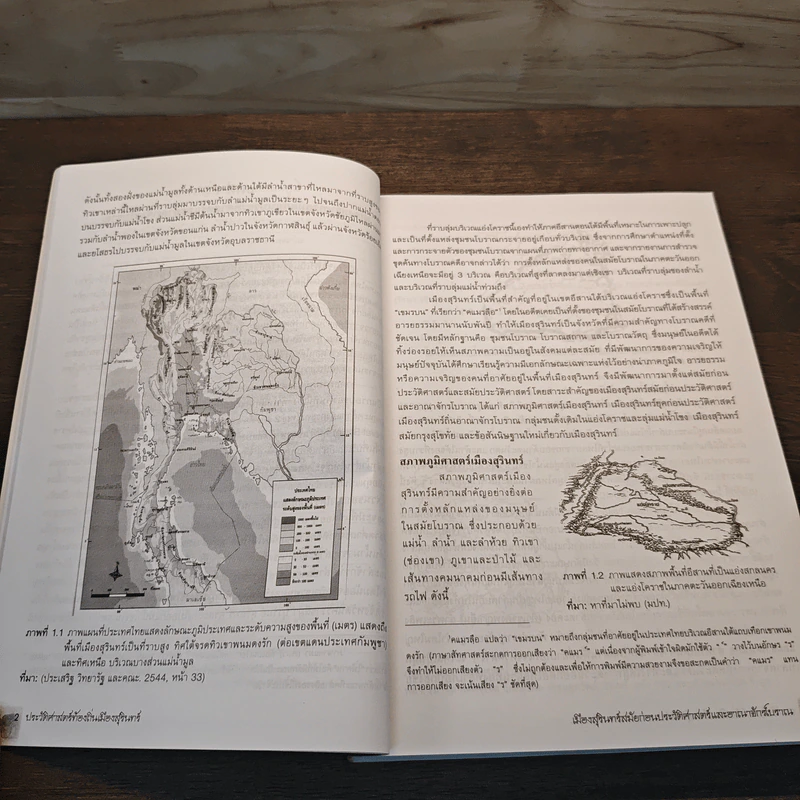 ดังนั้นทั้งสองฝั่งของแม่น้ำมูลทั้งด้านเหนือและด้านใต้มีลำน้ำสาขาที่ไหลมาจากที่ราบสูง
ทิวเขาเหล่านี้ไหลผ่านที่ราบลุ่มมาบรรจบกับลำน้ำมูลเป็นระยะๆ ไปจนถึงปากแม่น้ำ
บนบรรจบกับแม่น้ำโขง ส่วนแม่น้ำชีมีต้นน้ำมาจากทิวเขาภูเขียวในเขตจังหวัดชัยภูมิไหลผ่าน
รวมกับลำน้ำพองในเขตจังหวัดขอนแก่น ลำน้ำปาวในจังหวัดกาฬสินธุ์ แล้วผ่านจังหวัดร้อยเอ็ด
และยโสธรไปบรรจบกับแม่น้ำมูลในเขตจังหวัดอุบลราชธานี
พม่า
ลาว
กัมพูชา
อ่าวไทย
มาเลเซีย
ประเทศไทย
แสดงลักษณะภูมิประเทศ
ระดับสูงของพื้นที่ (เมตร)
ภาพที่ 1.1 ภาพแผนที่ประเทศไทยแสดงลักษณะภูมิประเทศและระดับความสูงของพื้นที่ (เมตร) แสดงถึง
พื้นที่เมืองสุรินทร์เป็นที่ราบสูง ทิศใต้จรดทิวเขาพนมดงรัก (ต่อเขตแดนประเทศกัมพูชา)
และทิศเหนือ บริเวณบางส่วนแม่น้ำมูล
ที่มา: (ประเสริฐ วิทยารัฐ และคณะ. 2544, หน้า 33)
2 ประวัติศาสตร์ท้องถิ่นเมืองสุรินทร์
ที่ราบลุ่มบริเวณแอ่งโคราชนี้เองทำให้ภาคอีสานตอนใต้มีพื้นที่เหมาะในการเพาะปลูก
และเป็นที่ตั้งแหล่งชุมชนโบราณกระจายอยู่เกือบทั่วบริเวณ ซึ่งจากการศึกษาตำแหน่งที่ตั้ง
และการกระจายตัวของชุมชนโบราณจากแผนที่ภาพถ่ายทางอากาศ และจากรายงานการสำรวจ
ขุดค้นทางโบราณคดีอาจกล่าวได้ว่า การตั้งหลักแหล่งของคนในสมัยโบราณในภาคตะวันออก
เฉียงเหนือจะมีอยู่ 3 บริเวณ คือบริเวณที่สูงที่ลาดลงมาแต่เชิงเขา บริเวณที่ราบลุ่มของลำน้ำ
และบริเวณที่ราบลุ่มแม่น้ำท่วมถึง
เมืองสุรินทร์เป็นพื้นที่สำคัญที่อยู่ในเขตอีสานใต้บริเวณแอ่งโคราชซึ่งเป็นพื้นที่
"เขมรบน" ที่เรียกว่า "คแมรลือ"¹ โดยในอดีตเคยเป็นที่ตั้งของชุมชนในสมัยโบราณที่ได้สร้างสรรค์
อารยธรรมมานานนับพันปี ทำให้เมืองสุรินทร์เป็นจังหวัดที่มีความสำคัญทางโบราณคดีที่
ชัดเจน โดยมีหลักฐานคือ ชุมชนโบราณ โบราณสถาน และโบราณวัตถุ ซึ่งมนุษย์ในอดีตได้
ทิ้งร่องรอยให้เห็นสภาพความเป็นอยู่ในสังคมแต่ละสมัย ที่มีพัฒนาการของความเจริญให้
มนุษย์ปัจจุบันได้ศึกษาเรียนรู้ความมีเอกลักษณะเฉพาะแห่งไว้อย่างน่าภาคภูมิใจ อารยธรรม
หรือความเจริญของคนที่อาศัยอยู่ในพื้นที่เมืองสุรินทร์ จึงมีพัฒนาการมาตั้งแต่สมัยก่อน
ประวัติศาสตร์และสมัยประวัติศาสตร์ โดยสาระสำคัญของเมืองสุรินทร์สมัยก่อนประวัติศาสตร์
และอาณาจักรโบราณ ได้แก่ สภาพภูมิศาสตร์เมืองสุรินทร์ เมืองสุรินทร์ยุคก่อนประวัติศาสตร์
เมืองสุรินทร์กับอาณาจักรโบราณ กลุ่มชนดั้งเดิมในแอ่งโคราชและลุ่มแม่น้ำโขง เมืองสุรินทร์
สมัยกรุงสุโขทัย และข้อสันนิษฐานใหม่เกี่ยวกับเมืองสุรินทร์
สภาพภูมิศาสตร์เมืองสุรินทร์
สภาพภูมิศาสตร์เมือง
สุรินทร์มีความสำคัญอย่างยิ่งต่อ
การตั้งหลักแหล่งของมนุษย์
ในสมัยโบราณ ซึ่งประกอบด้วย
แม่น้ำ ลำน้ำ และลำห้วย ทิวเขา
(ช่องเขา) ภูเขาและป่าไม้ และ
เส้นทางคมนาคมก่อนมีเส้นทาง
รถไฟ ดังนี้
ภาพที่ 1.2 ภาพแสดงสภาพพื้นที่อีสานที่เป็นแอ่งสกลนคร
และแอ่งโคราชในภาคตะวันออกเฉียงเหนือ
ที่มา: หาที่มาไม่พบ (มปท.)
¹คแมรลือ แปลว่า "เขมรบน" หมายถึงกลุ่มชนที่อาศัยอยู่ในประเทศไทยบริเวณอีสานใต้แถบเทือกเขาพนม
ดงรัก (ภาษาสัทศาสตร์สะกดการออกเสียงว่า "คแมร์" แต่เนื่องจากผู้พิมพ์เข้าใจผิดมักใช้ตัว "์" วางไว้บนอักษร "ร"
จึงทำให้ไม่ออกเสียงตัว "ร" ซึ่งไม่ถูกต้องและเพื่อให้การพิมพ์มีความสวยงามจึงขอสะกดเป็นคำว่า "คแมร" แทน
การออกเสียง จะเน้นเสียง "ร" ชัดที่สุด)
เมืองสุรินทร์สมัยก่อนประวัติศาสตร์และอาณาจักรโบราณ